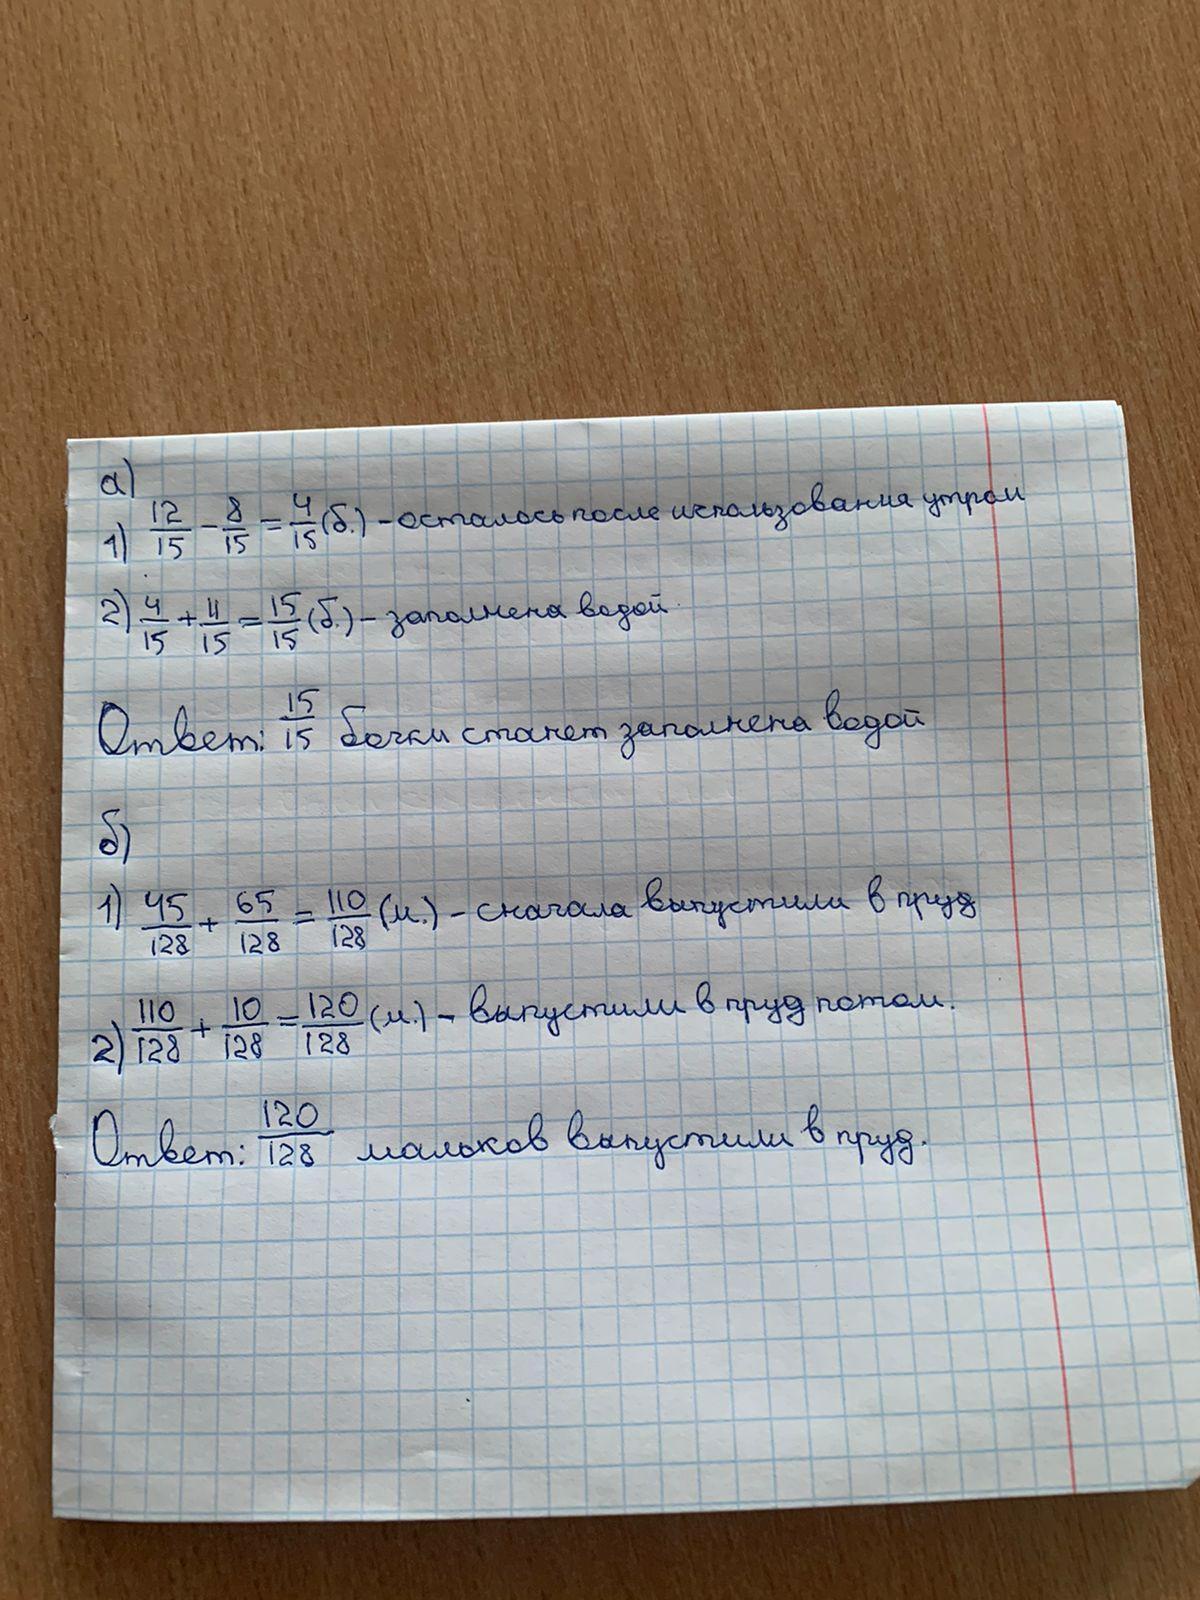 а)
1) 12/15 - 8/15 = 4/15 (б.) - осталось после использования утром
2) 4/15 + 11/15 = 15/15 (б.) - заполнена водой.
Ответ: 15/15 бочки станет заполнена водой
б)
1) 45/128 + 65/128 = 110/128 (м.) - сначала выпустили в пруд
2) 110/128 + 10/128 = 120/128 (м.) - выпустили в пруд потом.
Ответ: 120/128 мальков выпустили в пруд.